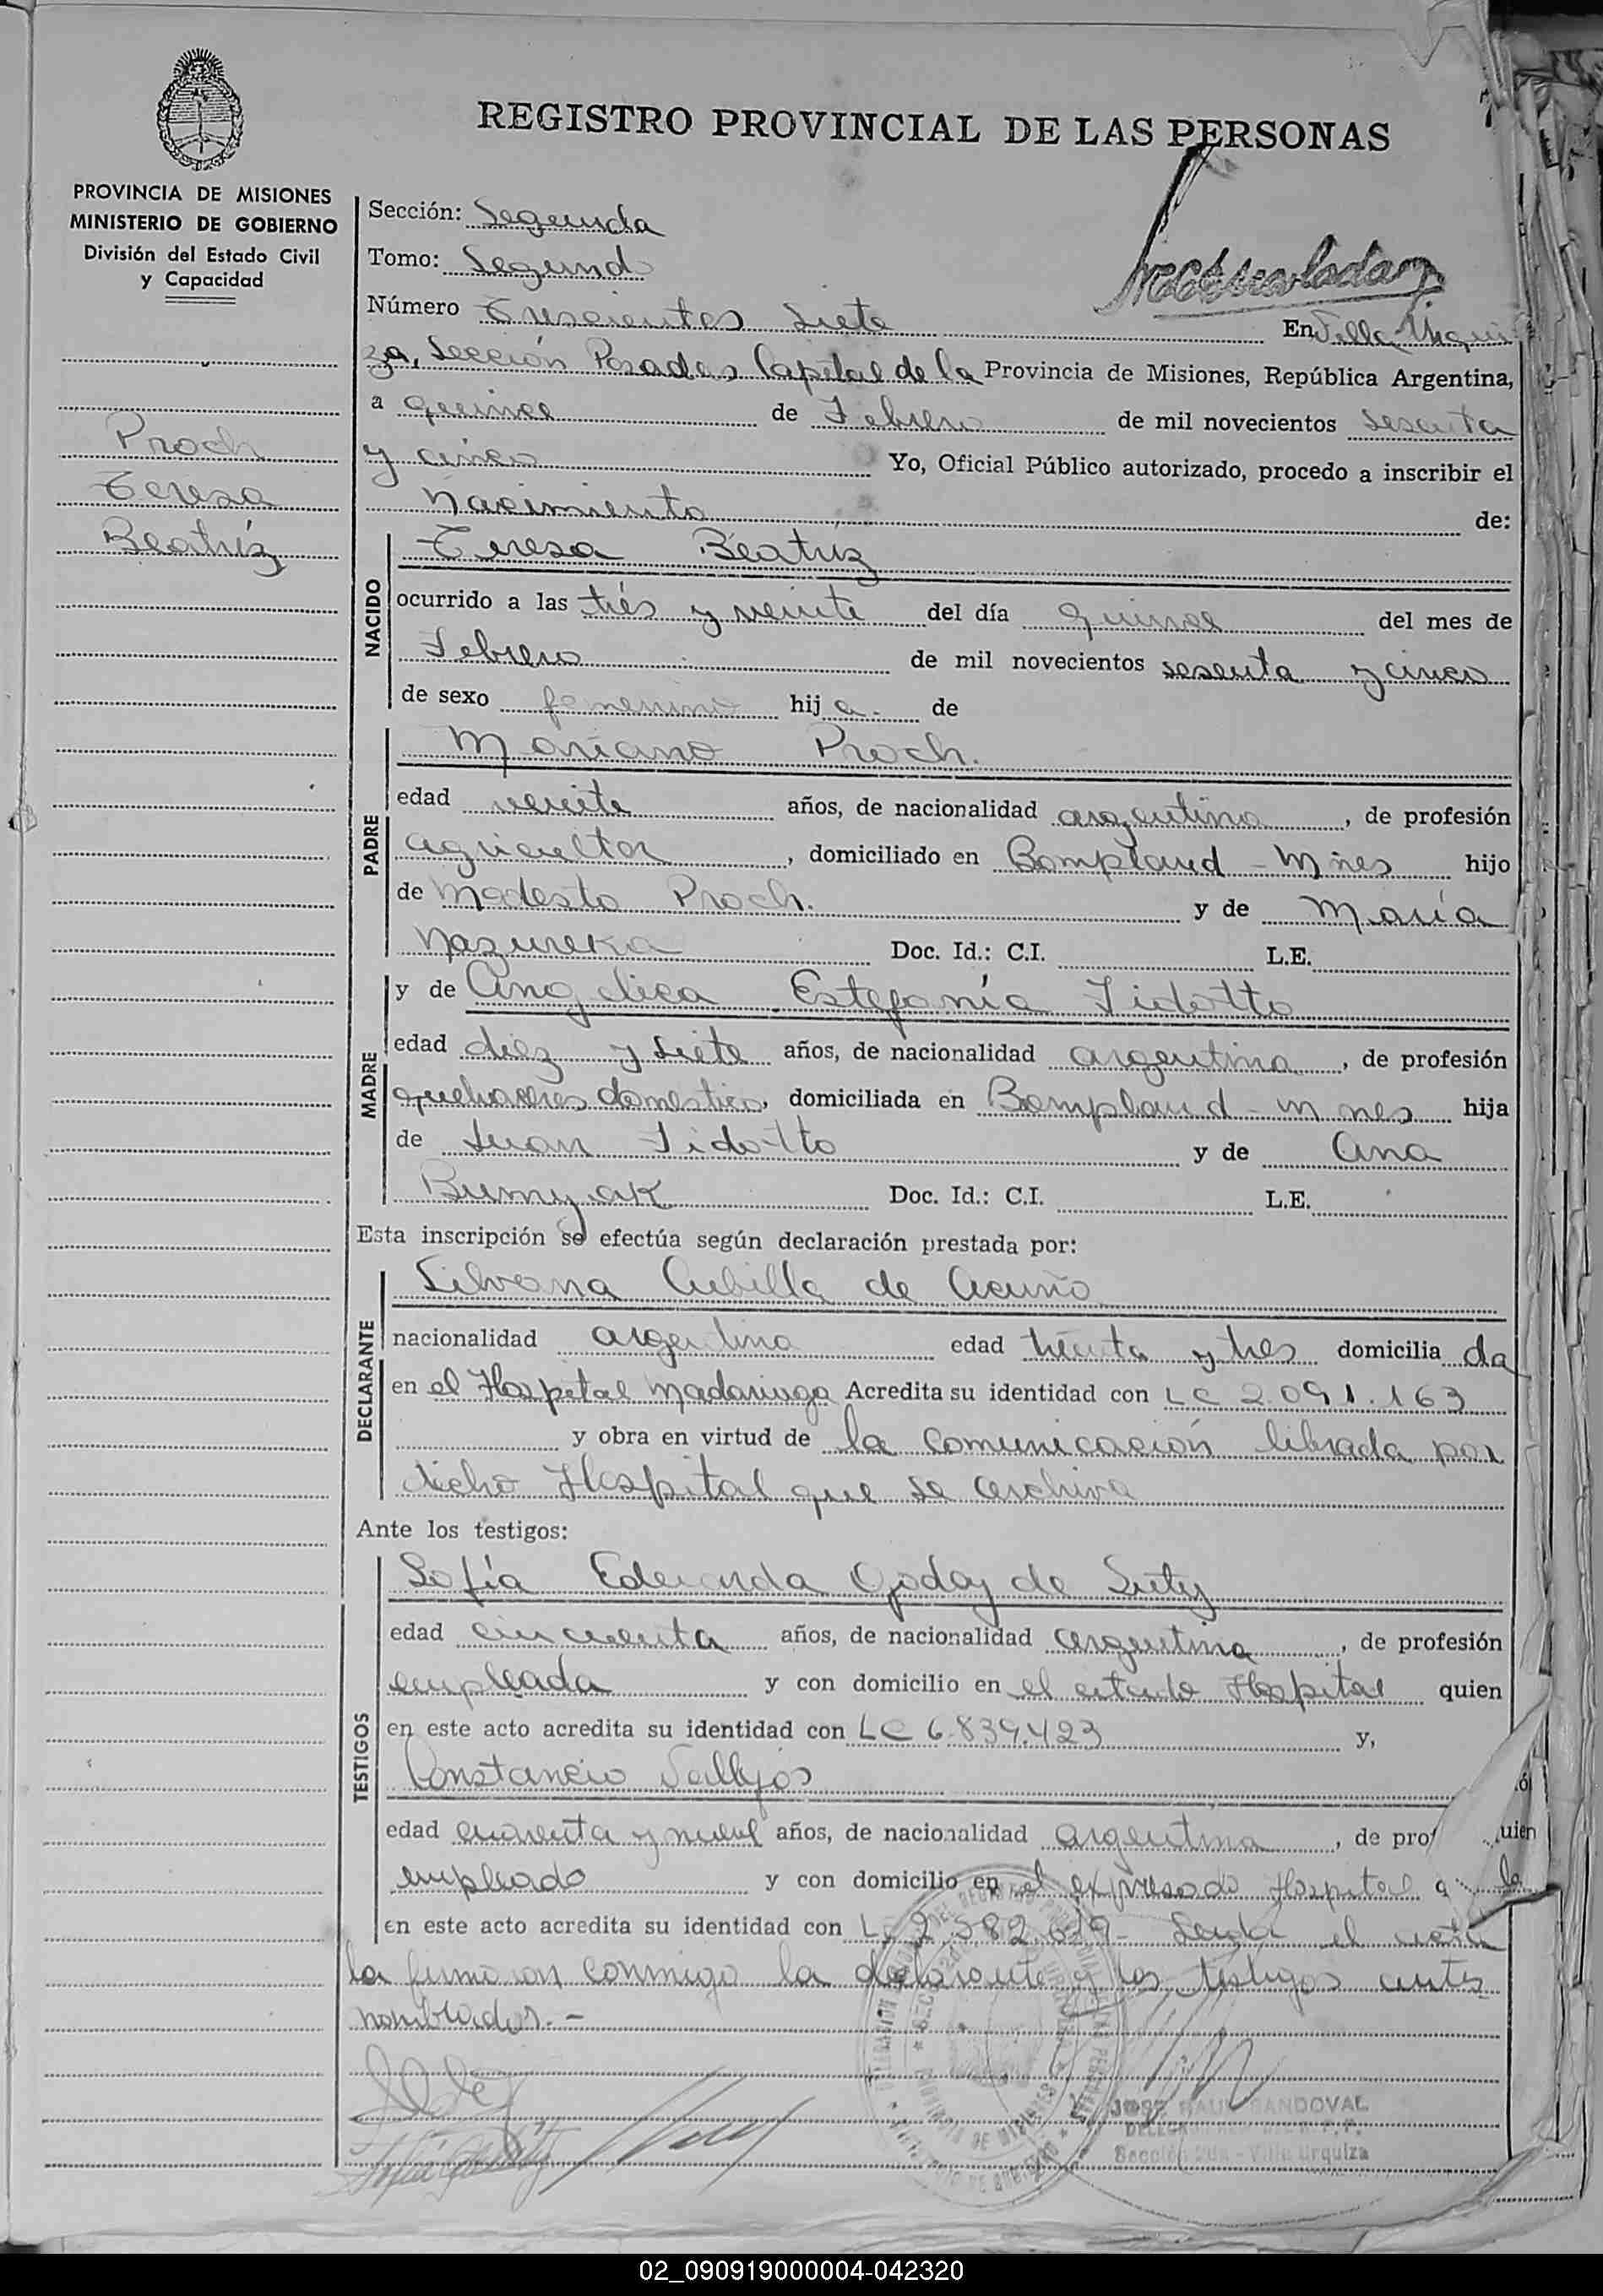 REGISTRO PROVINCIAL DE LAS PERSONAS
PROVINCIA DE MISIONES
MINISTERIO DE GOBIERNO
División del Estado Civil
y Capacidad
Proch
Teresa
Beatríz
Sección: Segunda
Tomo: Segundo
Número Trescientos Siete En Villa Urqui
za, Sección Posadas Capital de la Provincia de Misiones, República Argentina,
a quince de Febrero de mil novecientos sesenta
y cinco Yo, Oficial Público autorizado, procedo a inscribir el
Nacimiento de:
NACIDO
Teresa Beatriz
ocurrido a las trés y veinte del día quince del mes de
Febrero de mil novecientos sesenta y cinco
de sexo femenino hij a. de
PADRE
Mariano Proch.
edad veinte años, de nacionalidad argentina, de profesión
agricultor, domiciliado en Bompland - Mnes hijo
de Modesto Proch. y de María
Nazureka Doc. Id.: C.I. L.E.
MADRE
y de Angelica Estefanía Tidotto
edad diez y siete años, de nacionalidad argentina, de profesión
quehaceres domestico, domiciliada en Bompland - mnes hija
de Juan Tidotto y de Ana
Bumyak Doc. Id.: C.I. L.E.
Esta inscripción se efectúa según declaración prestada por:
DECLARANTE
Silvana Cubilla de Acuño
nacionalidad argentina edad treinta y tres domicilia da
en el Hospital Madariaga Acredita su identidad con LC 2.091.163
y obra en virtud de la comunicación librada por
dicho Hospital que se archiva
Ante los testigos:
TESTIGOS
Sofía Edelanda Godoy de
edad cincuenta años, de nacionalidad argentina, de profesión
empleada y con domicilio en el citado Hospital quien
en este acto acredita su identidad con LC 6.839.423 y,
Constancio Vallejos
edad cuarenta y nueve años, de nacionalidad argentina, de prof
empleado y con domicilio en el expresado Hospital q
en este acto acredita su identidad con L 2.582.619 - Leída el acta
la firmaron conmigo la declarante y los testigos antes
nombrados. -
JOSE RAUL SANDOVAL
Sección 2da - Villa Urquiza
02_090919000004-042320